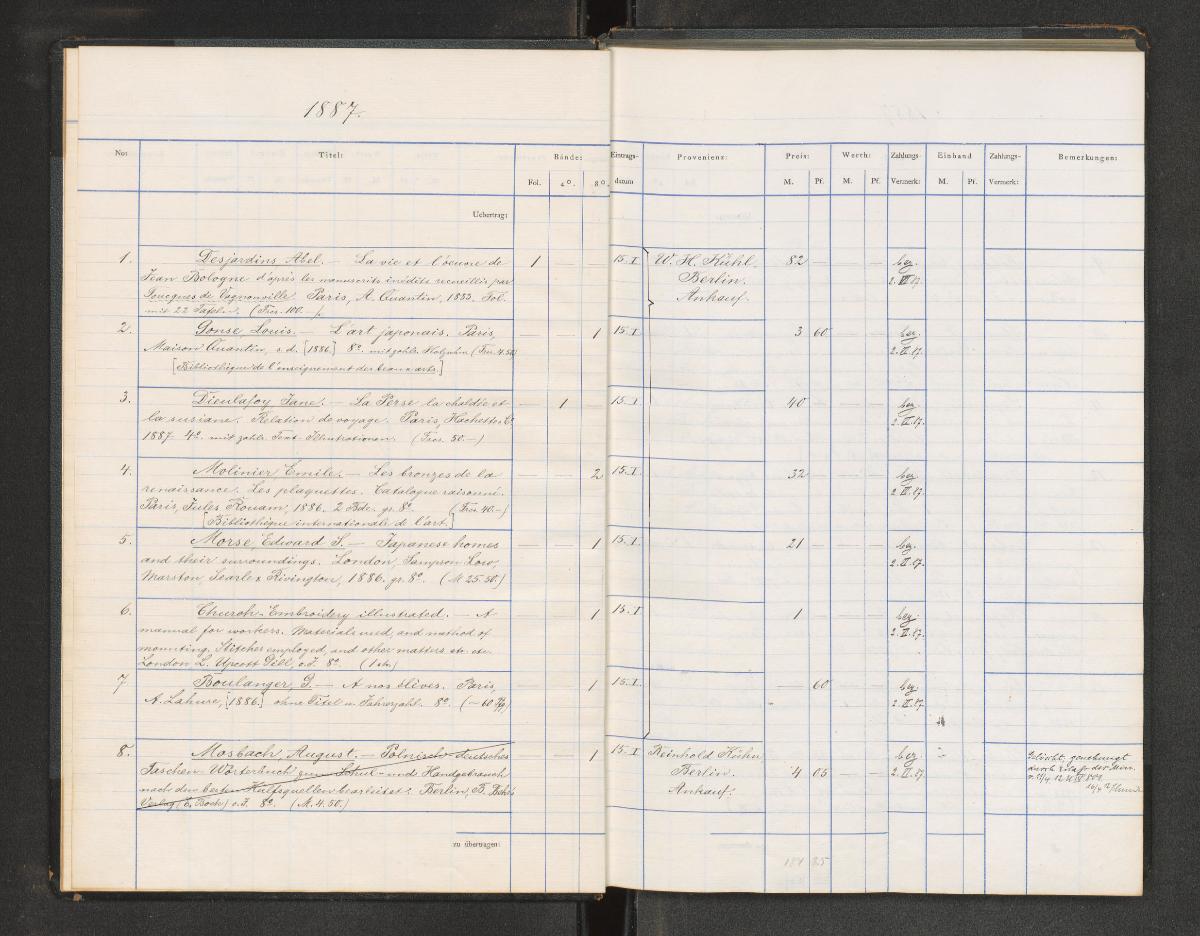 1887.
No: Titel: Bände: Eintrags- Provenienz: Preis: Werth: Zahlungs- Einband Zahlungs- Bemerkungen:
Fol. 4°. 8°. datum M. Pf. M. Pf. Vermerk: M. Pf. Vermerk:
Uebertrag:
1. Desjardins Abel. — La vie et l'oeuvre de 1 — — 15.I. W. H. Kühl, 82 — — — bez.
Jean Bologne d'après les manuscrits inédits recueillis par Berlin. 2.II.87.
Foucques de Vagnonville. Paris, A. Quantin, 1883. Fol. Ankauf.
mit 22 Tafeln. (Frcs. 100.—)
2. Gonse Louis. — L'art japonais. Paris, — — 1 15.I. 3 60 — — bez.
Maison Quantin, s. d. [1886.] 8°. mit zahlr. Holzschn. (Frcs. 4.50) 2.II.87.
[Bibliothèque de l'enseignement des beaux arts.]
3. Dieulafoy Jane. — La Perse la chaldée et — 1 — 15.I. 40 — — — bez.
la susiane. Relation de voyage. Paris, Hachette & C° 2.II.87.
1887 4°. mit zahlr. Text-Illustrationen. (Frcs. 50.—)
4. Molinier, Emile. — Les bronzes de la — — 2 15.I. 32 — — — bez.
renaissance. Les plaquettes. Catalogue raisonné. 2.II.87.
Paris, Jules Rouam, 1886. 2 Bde. gr. 8°. (Frcs 40.—)
[Bibliothèque internationale de l'art.]
5. Morse, Edward S. — Japanese homes — — 1 15.I. 21 — — — bez.
and their surroundings. London, Sampson Low, 2.II.87.
Marston, Searle & Rivington, 1886. gr. 8°. (M. 25.50.)
6. Church-Embroidery illustrated. — A — — 1 15.I 1 — — — bez.
manual for workers. Materials used, and method of 2.II.87.
mounting. Stitches employed, and other matters etc. etc.
London L. Upcott Gill, o. J. 8°. (1 sh.)
7. Boulanger, G. — A nos élèves. Paris, — — 1 15.I. — 60 — — bez.
A. Lahure, [1886.] ohne Titel u. Jahrzahl. 8°. (— 60 Pfg.) 2.II.87
8. Mosbach, August. — Polnisch-deutsches — — 1 15.I. Reinhold Kühn, 4 05 — — bez
Taschen-Wörterbuch zum Schul- und Handgebrauch Berlin. 2.II.87.
nach den besten Hülfsquellen bearbeitet. Berlin, B. Behr's Ankauf.
Verlag (E. Bock) o. J. 8°. (M. 4.50.)
Gelöscht, genehmigt
zu übertragen:
184 25